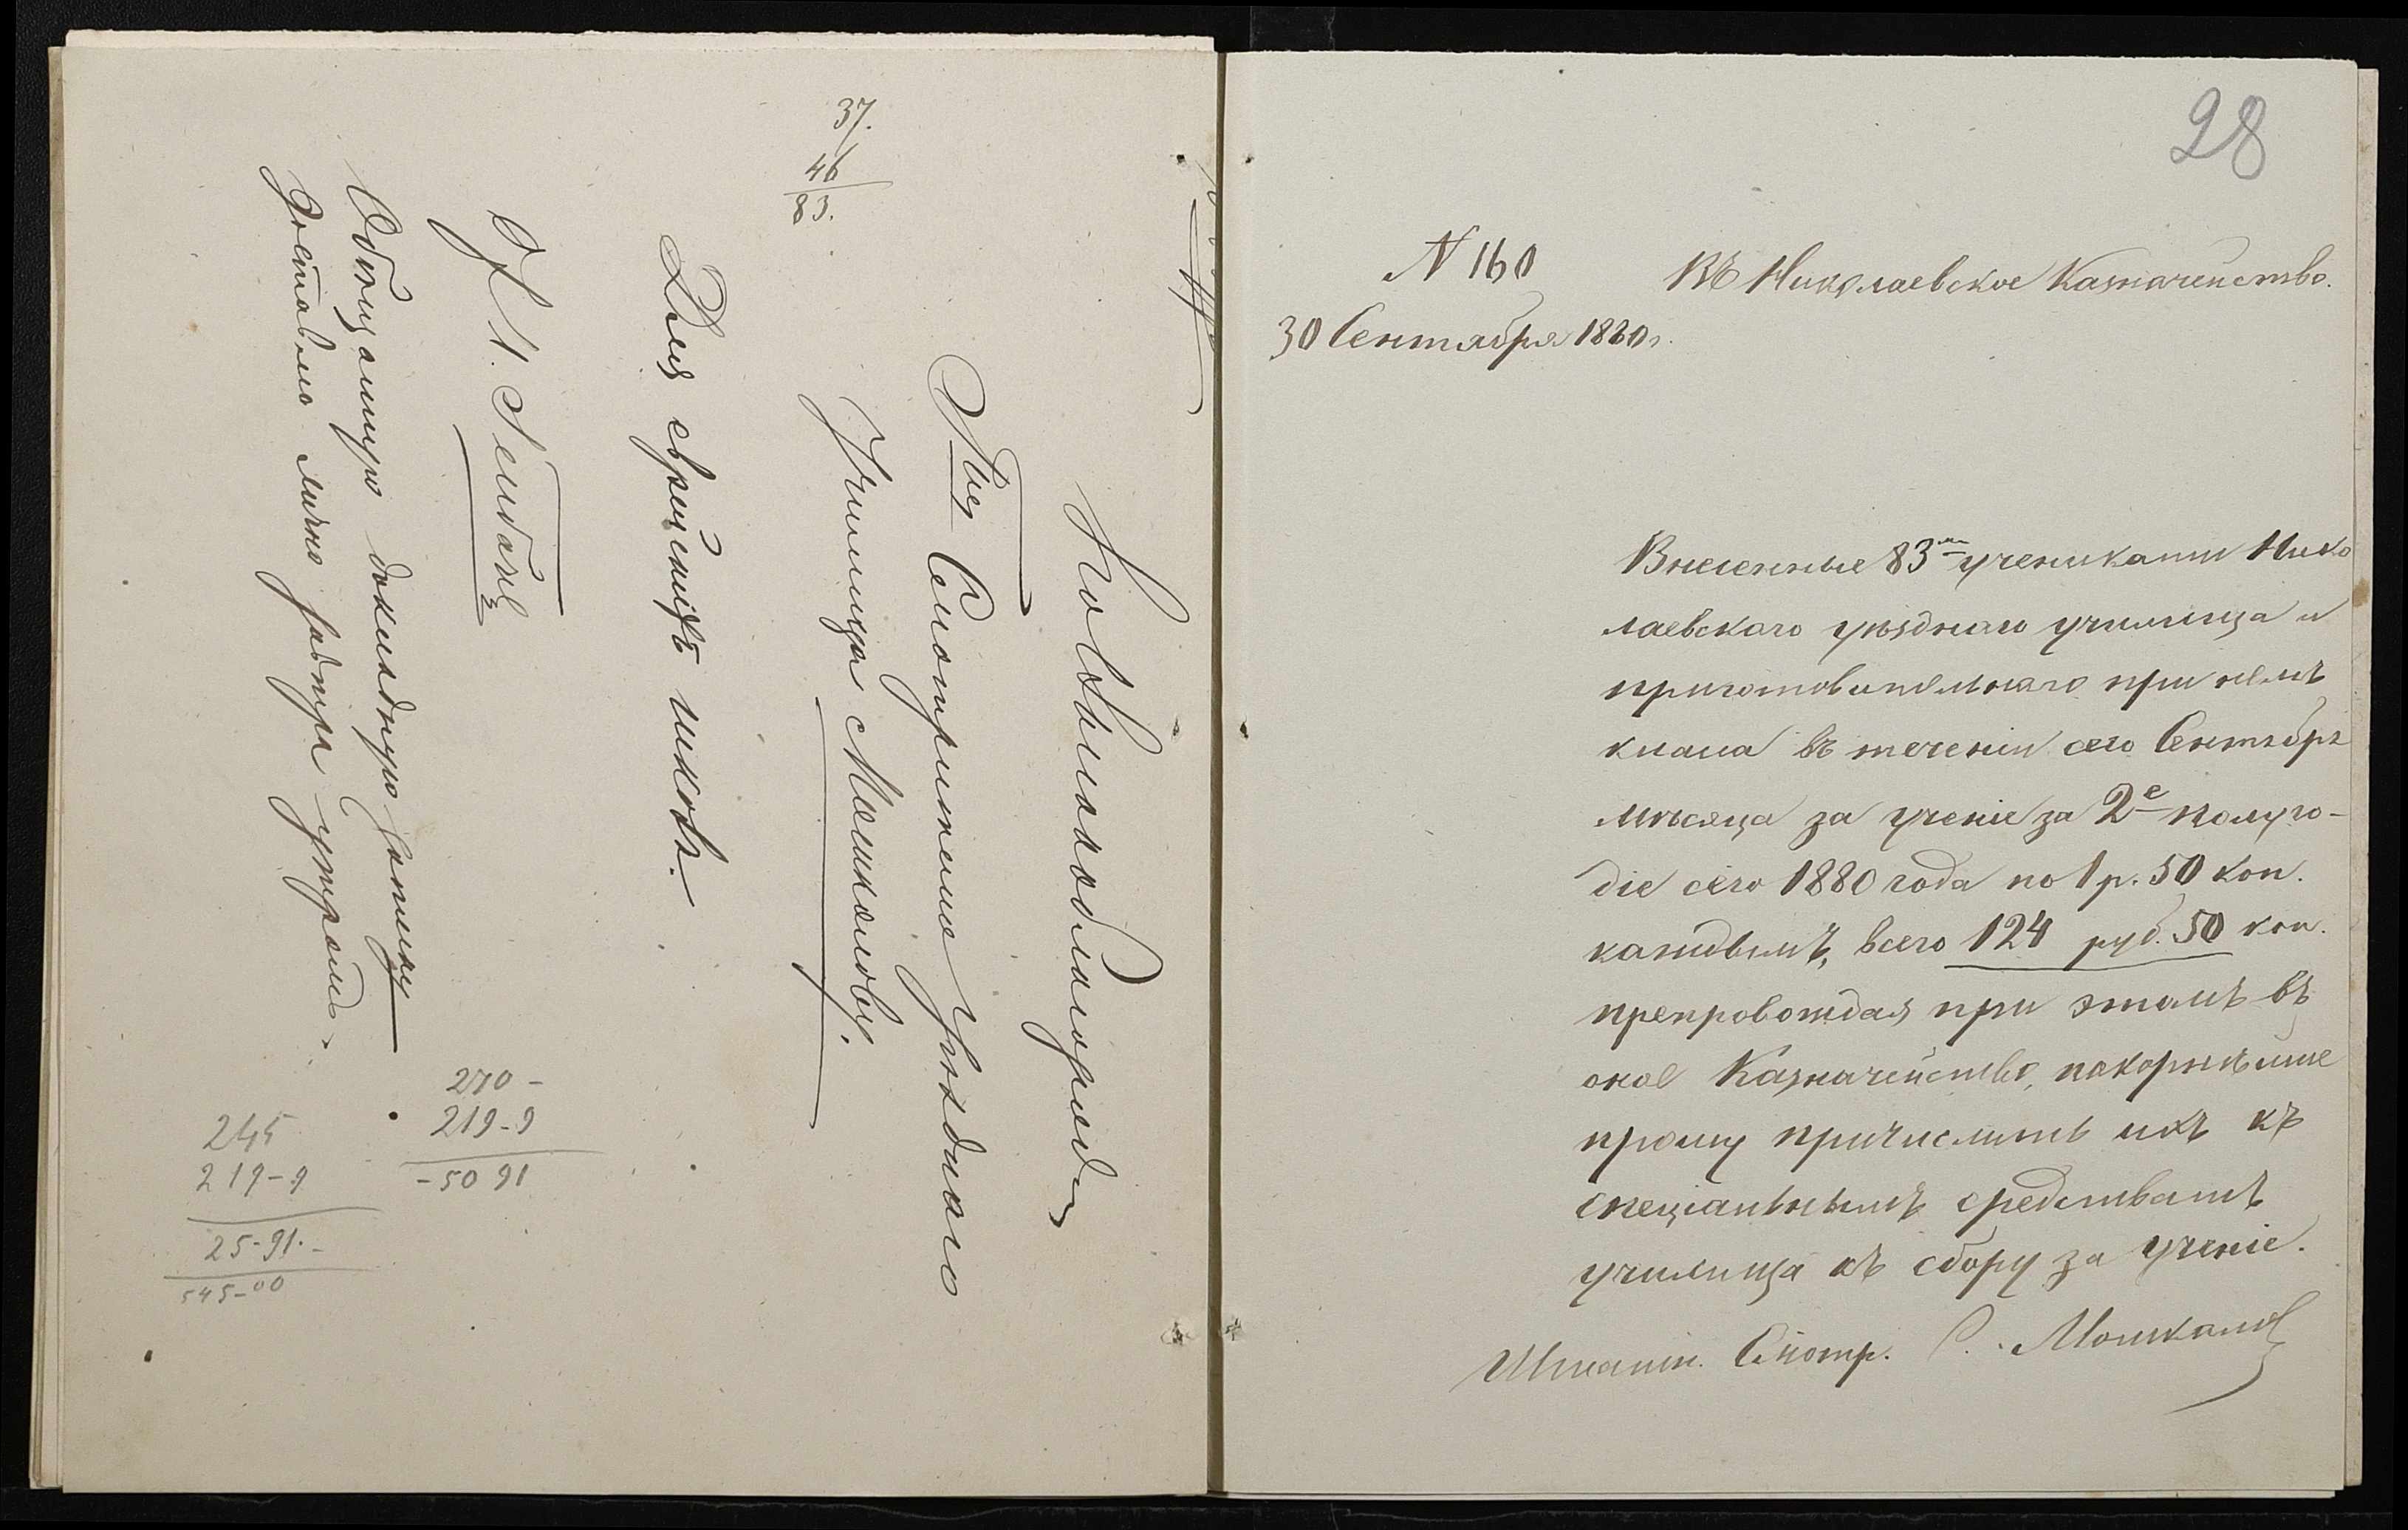 37.
46
83.
Его Высокоблагородію
Смотрителю Уѣзднаго
Училища Мошкалову.
Для еврейскихъ школъ.
Обѣщанную докладную записку
доставлю лично завтра утромъ.
270 -
219-9
-50 91
245
219-9
25-91.-
545-00
28
N 160
30 Сентября 1880 г.
Въ Николаевское Казначейство.
Внесенные 83-мя учениками Нико
лаевскаго уѣзднаго училища и
приготовительнаго при немъ
класса въ теченіи сего Сентября
мѣсяца за ученіе за 2е полуго-
діе сего 1880 года по 1 р. 50 коп.
каждымъ, всего 124 руб. 50 коп.
препровождая при этомъ въ
оное Казначейство, покорнѣйше
прошу причислить ихъ къ
спеціальнымъ средствамъ
училища къ сбору за ученіе.
Штатн. Смотр. С. Мошкалов